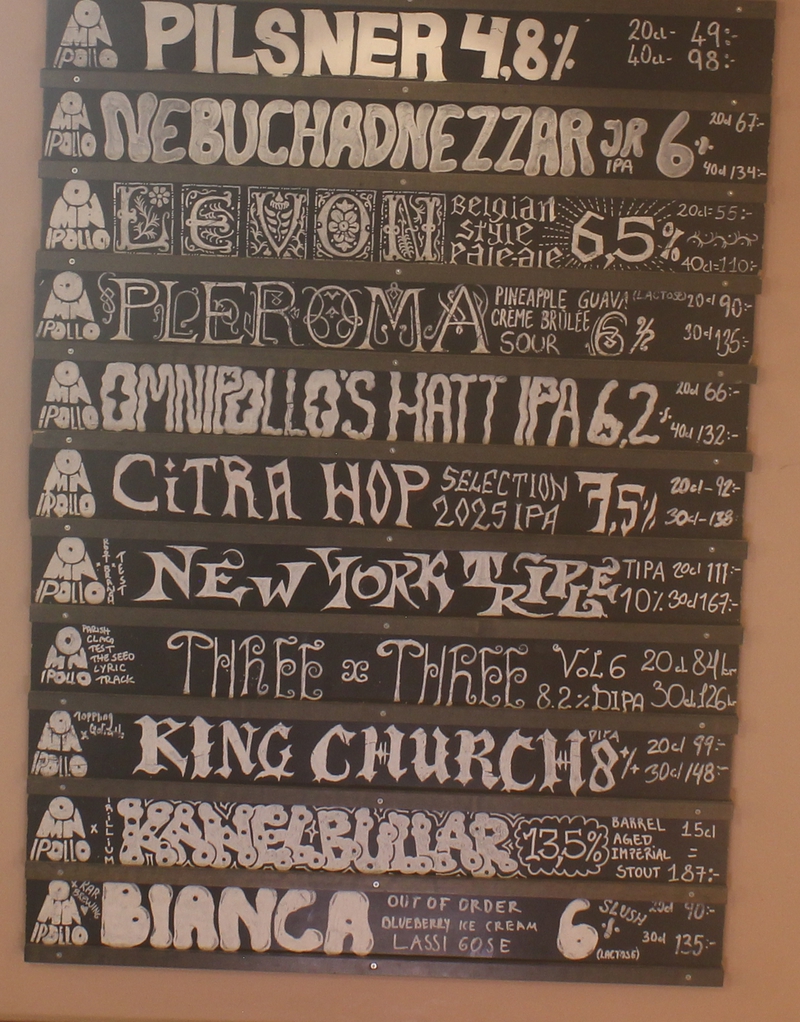 OMNIPOLLO PILSNER 4,8% 20cl- 49:-
40cl- 98:-
OMNIPOLLO NEBUCHADNEZZAR JR IPA 6% 20cl 67:-
40cl 134:-
OMNIPOLLO LEVON Belgian style pale-ale 6,5% 20cl=55:-
40cl=110:-
OMNIPOLLO PLEROMA PINEAPPLE GUAVA (LACTOSE) CRÈME BRÛLÉE SOUR 6% 20cl 90:-
30cl 135:-
OMNIPOLLO OMNIPOLLO'S HATT IPA 6,2% 20cl 66:-
40cl 132:-
OMNIPOLLO CiTRA HOP SELECTION 2025 IPA 7,5% 20cl-92:-
30cl-138:-
OMNIPOLLO x TEST NEW YORK TRIPLE TIPA 20cl 111:-
10% 30cl 167:-
OMNIPOLLO PARISH TEST THE SEED LYRIC TRACK THREE x THREE VOL 6 20cl 84kr
8.2% DIPA 30cl 126kr
OMNIPOLLO x Toppling Goliath KING CHURCH DIPA 8% 20cl 99:-
30cl 148:-
OMNIPOLLO x TRILLIUM KANELBULLAR 13,5% BARREL AGED IMPERIAL STOUT 15cl = 187:-
OMNIPOLLO x BREWING BIANCA OUT OF ORDER
BLUEBERRY ICE CREAM
LASSI GOSE 6% (LACTOSE) SLUSH 20cl 90:-
30cl 135:-